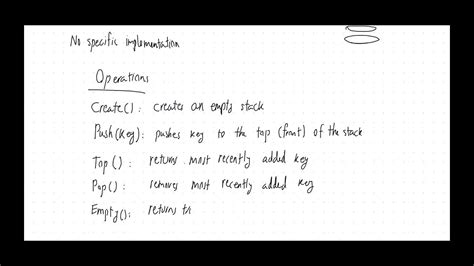 No specific implementation
Operations
Create(): creates an empty stack
Push(Key): pushes key to the top (front) of the stack
Top(): returns most recently added key
Pop(): removes most recently added key
Empty(): returns tr